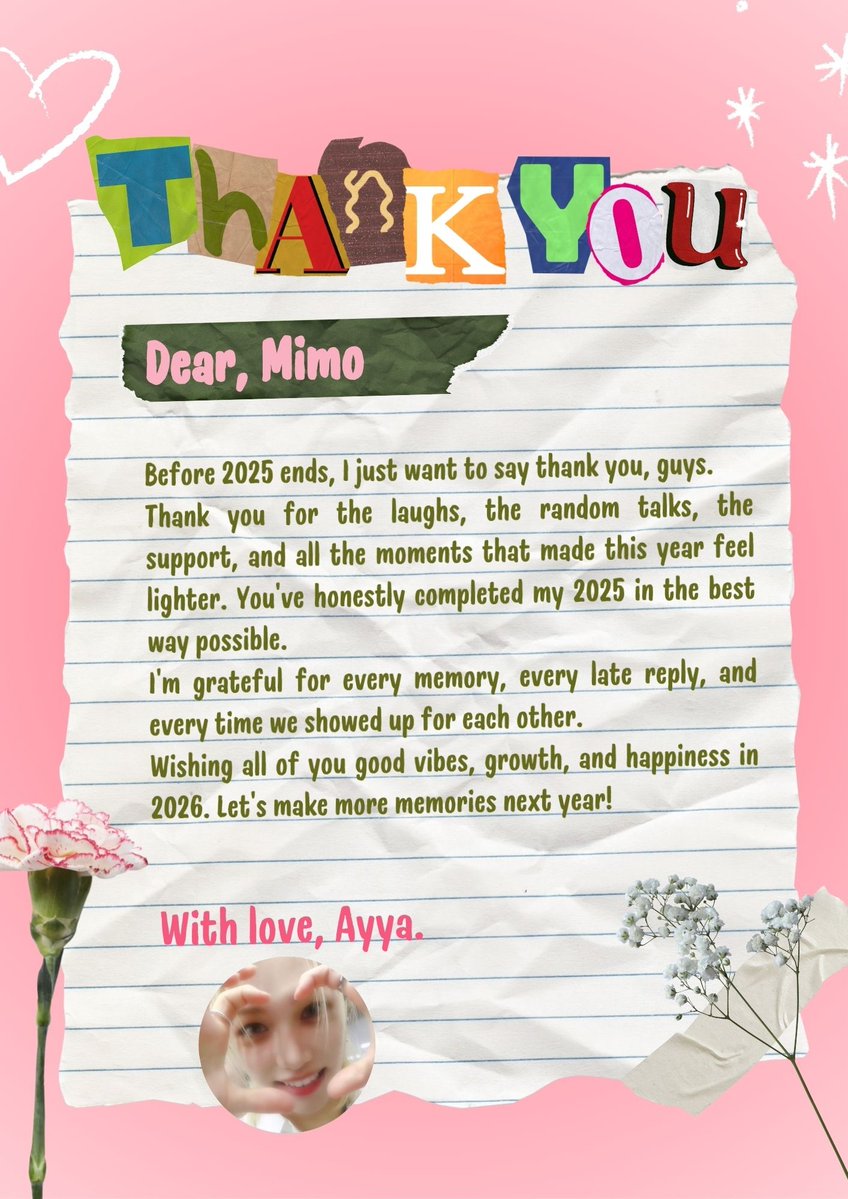 ThAnK YOu
Dear, Mimo
Before 2025 ends, I just want to say thank you, guys.
Thank you for the laughs, the random talks, the
support, and all the moments that made this year feel
lighter. You've honestly completed my 2025 in the best
way possible.
I'm grateful for every memory, every late reply, and
every time we showed up for each other.
Wishing all of you good vibes, growth, and happiness in
2026. Let's make more memories next year!
With love, Ayya.